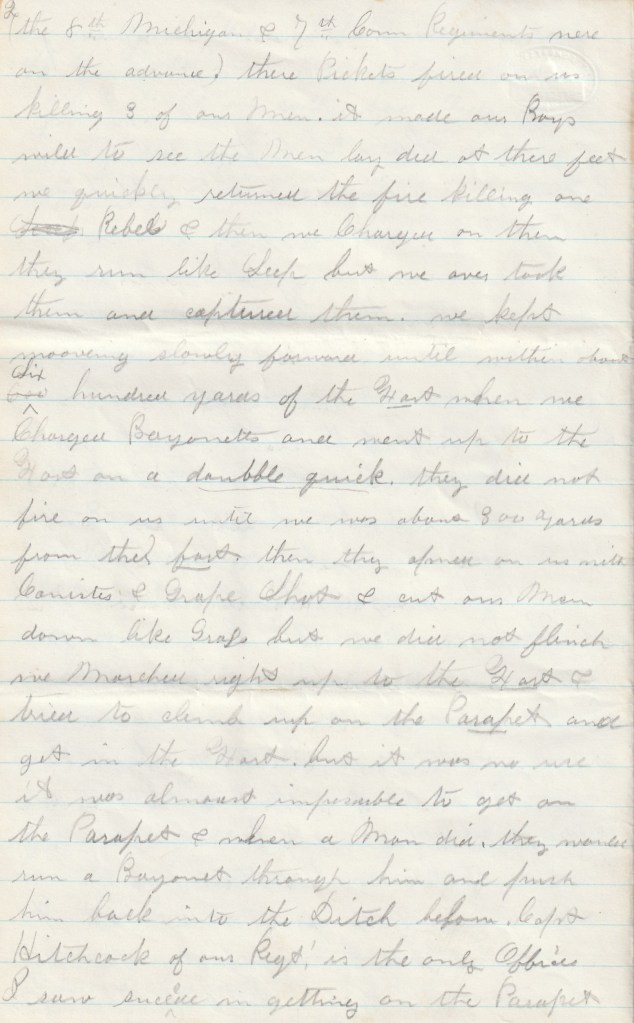 2
(the 8th Michigan & 7th Conn Regiments were
on the advance) there Pickets fired on us
killing 3 of our Men. it made our Boys
wild to see the Men lay ded at there feet
we quickly returned the fire killing one
Rebel & then we Charged on them
they run like Sheep but we over took
them and captured them. we kept
mooveing slowly forward until within about
Six
hundred yards of the Fort when we
Charged Bayonetts and went up to the
Fort on a doubble quick. they did not
fire on us until we was about 300 yards
from the fort. then they opned on us with
Canister & Grape Shot & cut our Men
down like Grass but we did not flinch
we Marched right up to the Fort &
tried to climb up on the Parapet and
get in the Fort. but it was no use
it was almoust imposable to get on
the Parapet & when a Man did. they would
run a Bayonet through him and push
him back into the Ditch below. Capt
Hitchcock of our Regt. is the only Officer
I saw succede in getting on the Parapet